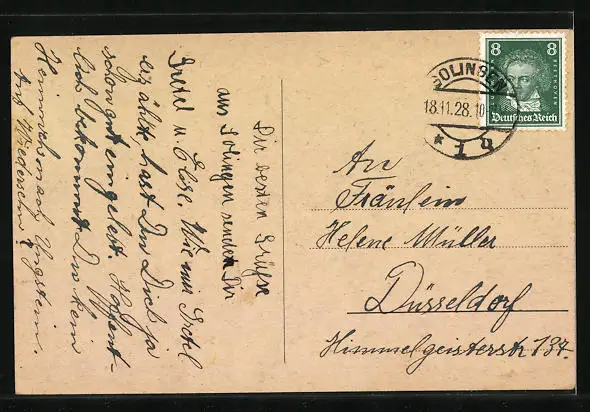 Die besten Grüße
aus Solingen senden Dir
Gretel u. Else. Wie mir Gretel
erzählt, hast Du Dich ja
schon gut eingelebt. Hoffent-
lich bekommst Du kein
Heimweh nach Ungstein.
Auf Wiedersehn!
8 8
BEETHOVEN
Deutsches Reich
SOLINGEN
18.11.28.10
* 1 q
An
Fräulein
Helene Müller
Düsseldorf
Himmelgeisterstr 134.